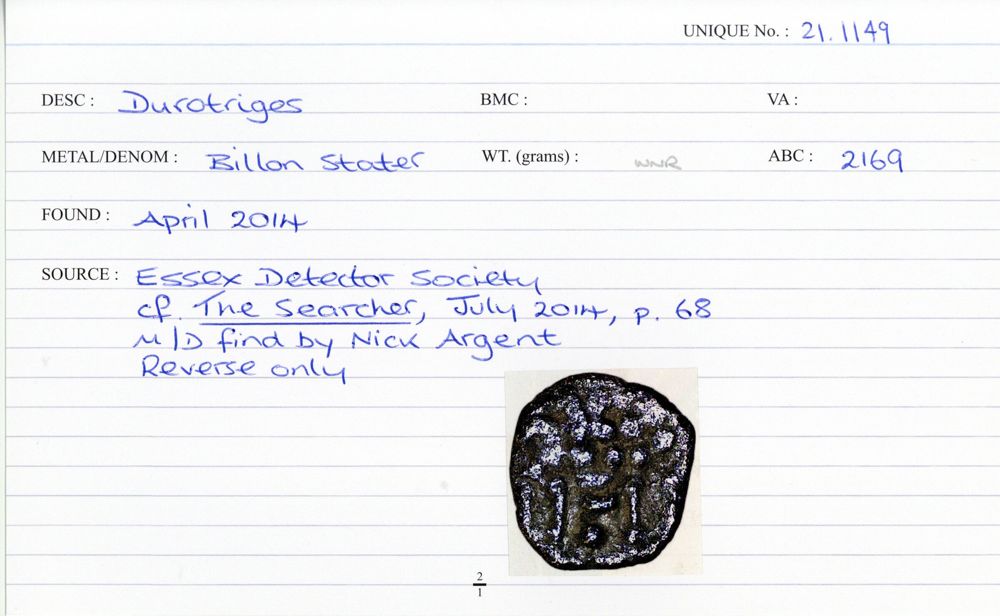 UNIQUE No. : 21.1149
DESC : Durotriges BMC : VA :
METAL/DENOM : Billon Stater WT. (grams) : WNR ABC : 2169
FOUND : April 2014
SOURCE : Essex Detector Society
cf. The Searcher, July 2014, p. 68
M/D find by Nick Argent
Reverse only
2
1